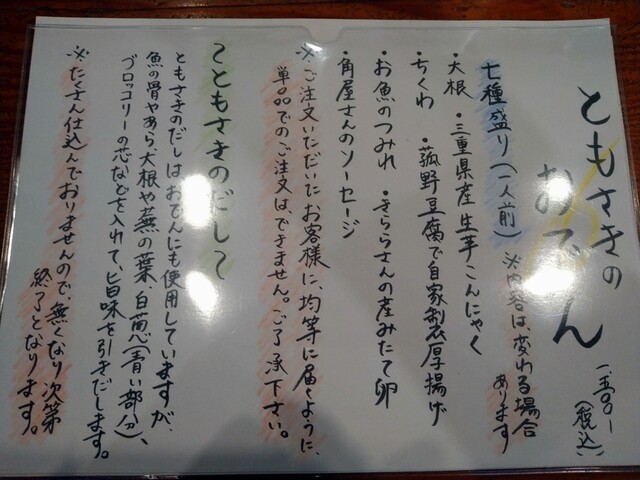 ともさきの
おでん
一、五〇〇-
(税込)
七種盛り(一人前)
※内容は、変わる場合
あります
・大根 ・三重県産生芋こんにゃく
・ちくわ ・菰野豆腐で自家製厚揚げ
・お魚のつみれ ・きららさんの産みたて卵
・角屋さんのソーセージ
※ご注文いただいたお客様に、均等に届くように、
単品でのご注文は、できません。ご了承下さい。
くともさきのだして
ともさきのだしは、おでんにも使用していますが、
魚の骨やあら、大根や蕪の葉、白葱(青い部分)、
ブロッコリーの芯などを入れて、旨味を引きだします。
※たくさん仕込んでおりませんので、無くなり次第
終了となります。